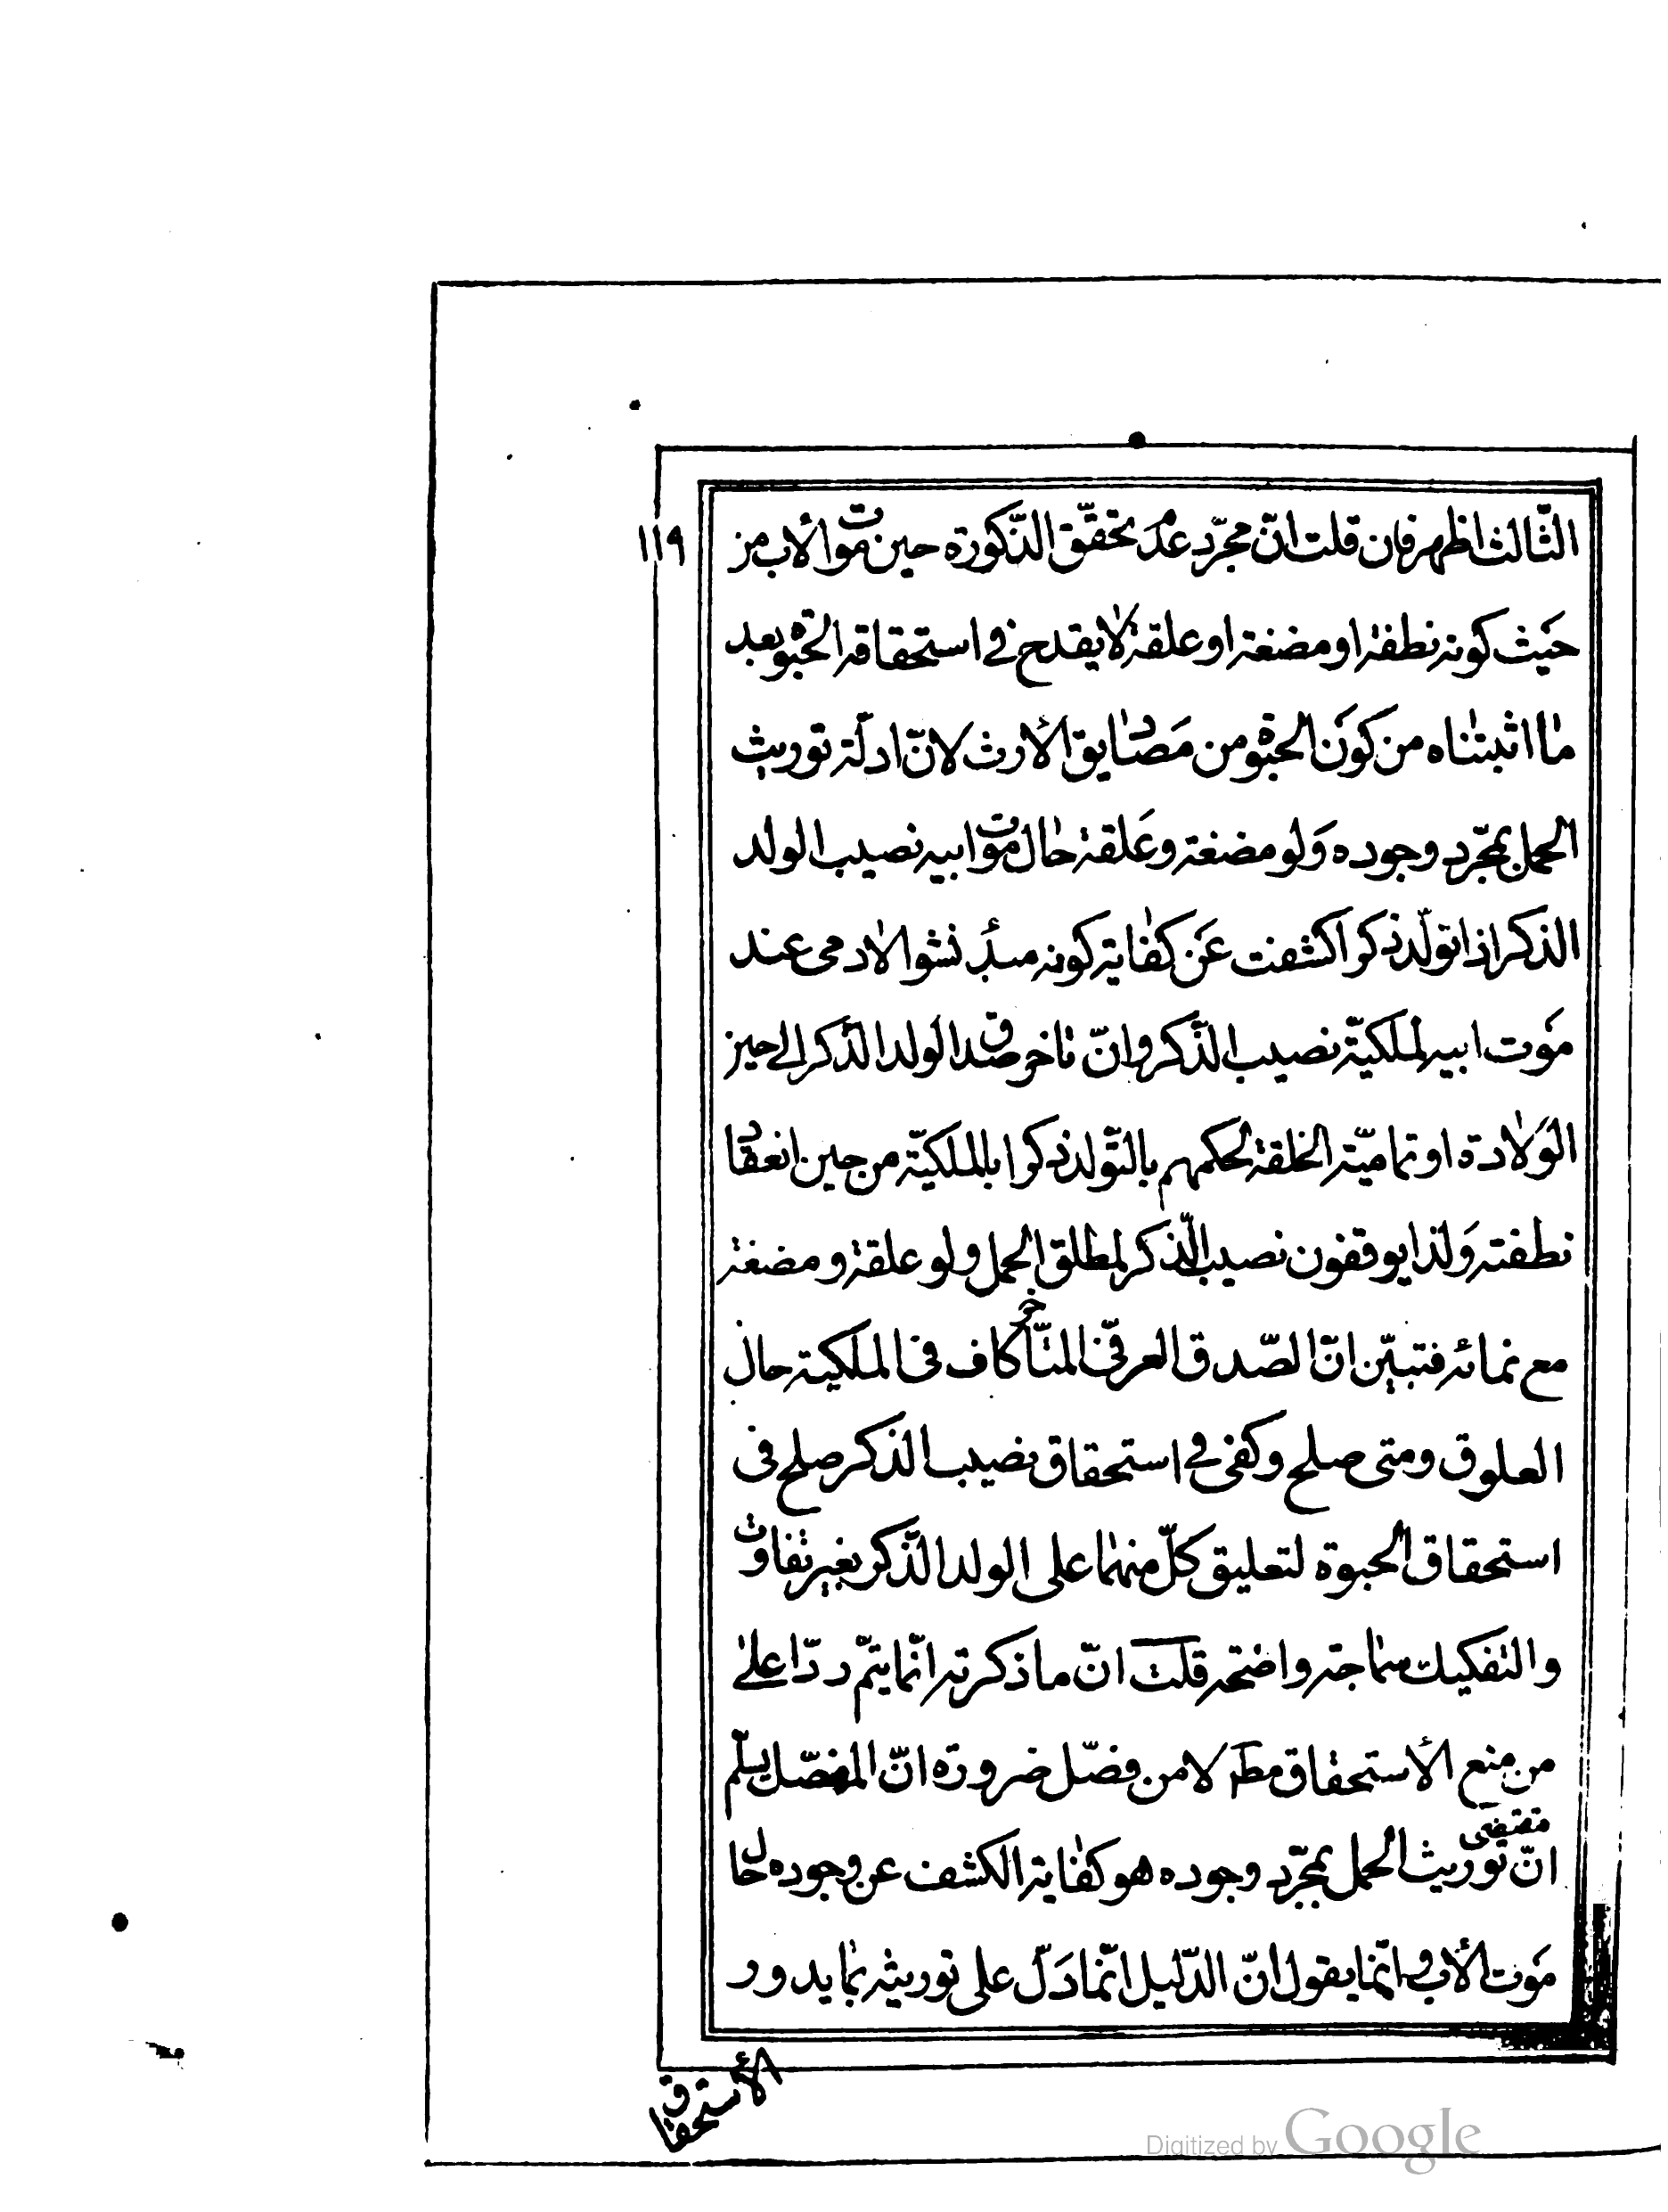 ١١٩
الثّالث اظهر فان قلت انّ مجرّد عدم تحقّق الذّكورة حين موت الأب من
حيث كونه نطفة او مضغة او علقة لا يقدح في استحقاقه الحبوة بعد
ما اثبتناه من كون الحبوة من مصاديق الأرث لانّ ادلّة توريث
الحمل بمجرّد وجوده ولو مضغة وعلقة حال موت ابيه نصيب الولد
الذكر اذا تولّد ذكرا كشفت عن كفاية كونه مبدء نشو الادمى عند
موت ابيه لملكيّة نصيب الذّكر وانّ تاخر صدق الولد الذّكر الى حين
الولادة او تماميّة الخلقة لحكمهم بالتّولد ذكرا بالملكيّة من حين انعقاد
نطفته ولذا يوقفون نصيب الذّكر لمطلق الحمل ولو علقة ومضغة
مع نمائه فتبيّن انّ الصّدق العرفىّ المتأخر كاف فى الملكية حال
العلوق ومتى صلح وكفى في استحقاق نصيب الذكر صلح فى
استحقاق الحبوة لتعليق كلّ منهما على الولد الذّكر بغير تفاوت
والتفكيك سماجته واضحه قلت انّ ما ذكرته انّما يتمّ ردّا على
من منع الأستحقاق مط لا من فصّل ضرورة انّ المفصّل يسلّم
انّ مقتضى توريث الحمل بمجرّد وجوده هو كفاية الكشف عن وجوده حال
موت الأب وانّما يقول انّ الدّليل انّما دلّ على توريثه بما يدور
الأستحقاق
Digitized by Google